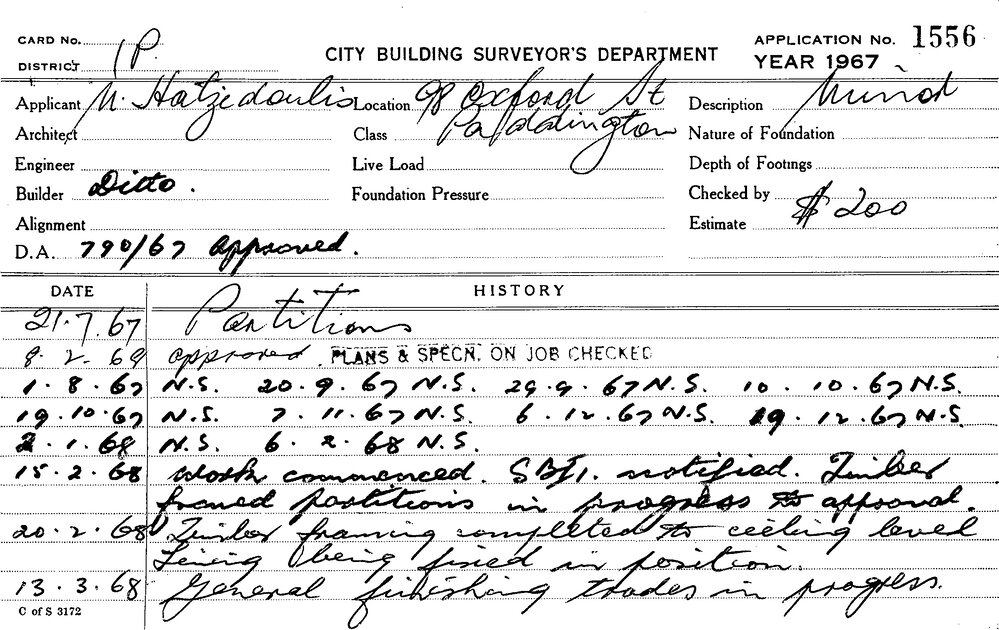 CARD No.
DISTRICT 1P.
CITY BUILDING SURVEYOR'S DEPARTMENT
APPLICATION No. 1556
YEAR 1967
Applicant N. Hatzedoulis Location 98 Oxford St Description
Architect Class Paddington Nature of Foundation
Engineer Live Load Depth of Footings
Builder Ditto. Foundation Pressure Checked by
Alignment Estimate $200
D.A. 790/67 Approved.
DATE HISTORY
21.7.67 Partitions
8.2.69 approved PLANS & SPECN. ON JOB CHECKED
1.8.67 N.S. 20.9.67 N.S. 29.9.67 N.S. 10.10.67 N.S.
19.10.67 N.S. 7.11.67 N.S. 6.12.67 N.S. 19.12.67 N.S.
2.1.68 N.S. 6.2.68 N.S.
15.2.68 Work commenced. notified. Timber
framed partitions in progress to approval.
20.2.68 Timber framing completed to ceiling level
Lining being fixed in position.
13.3.68 General finishing trades in progress.
C of S 3172